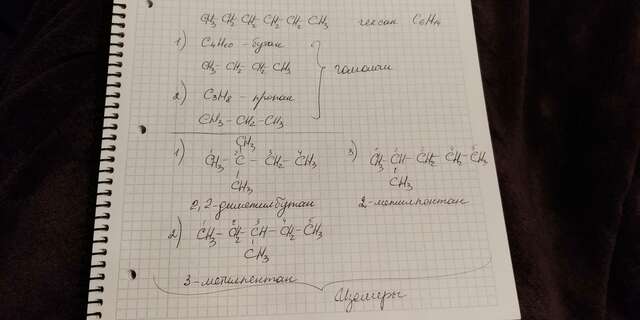 CH3 - CH2 - CH2 - CH2 - CH2 - CH3 гексан C6H14
1) C4H10 - бутан
CH3 - CH2 - CH2 - CH3
гомологи
2) C3H8 - пропан
CH3 - CH2 - CH3
CH3
1) CH3 - C - CH2 - CH3
CH3
2,2-диметилбутан
3) CH3 - CH - CH2 - CH2 - CH3
CH3
2-метилпентан
2) CH3 - CH2 - CH - CH2 - CH3
CH3
3-метилпентан
Изомеры